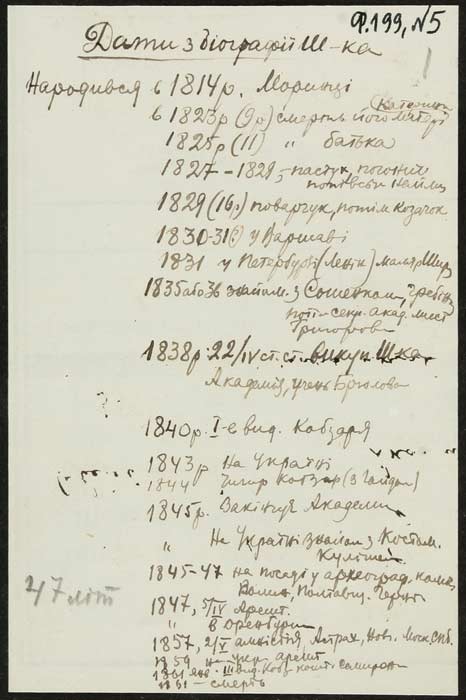 Ф.199, N5
Дати з біографії Ш-ка
Народився в 1814 р. Моринці
в 1823 р (9 р) смерть його матері (Катерини
1825 р (11) " батька
1827 – 1828, – пастух, погонич
1829 (16 р) поварчук, потім козачок
1830-31 (?) у Варшаві
1831 у Петербурзі (Ленін) маляр Шир
1835 або 36 знайом. з Сошенком, Гребін
секр. акад. мист
Григорови
1838 р 22/IV ст. ст. викуп Ш-ка
Академія, учень Брюлова
1840 р. I-е вид. Кобзаря
1843 р на Україні
1844 Чигир Кобзар (з Гайдам)
1845 р. Закінчує Академію
" На Україні знайом з Костом.
Кулішем
1845-47 на посаді у археограф. коміс.
Волин, Полтавщ. Черніг.
47 літ
1847, 5/IV Арешт.
" в Оренбурзі
1857, 2/V амністія, Астрах, Нов., Моск, СПб.
1859 на Укр. арешт
1861 янв. вид. Кобз. кошт. Симирен
1861 – смерть